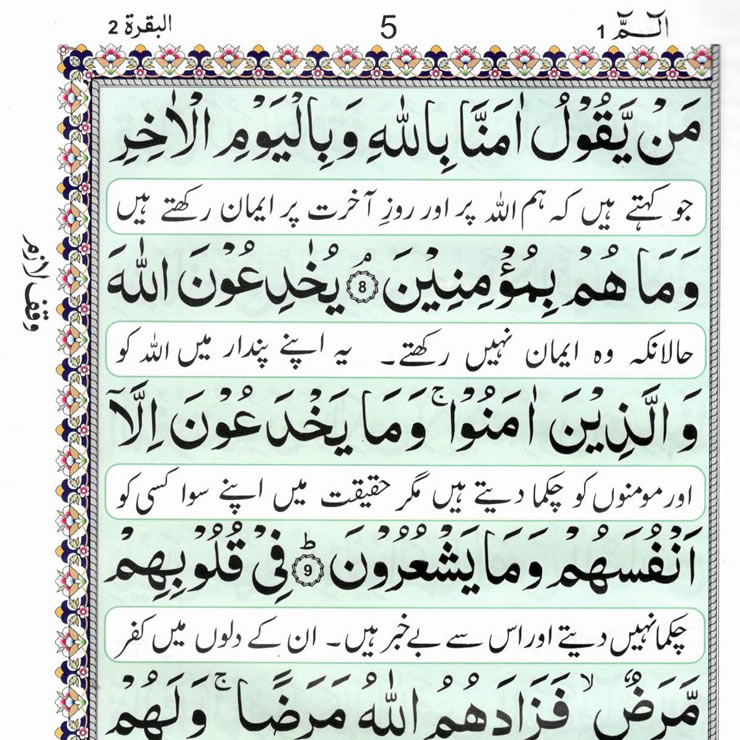 البقرة 2 5 الٓمّٓ 1
مَنْ يَّقُوْلُ اٰمَنَّا بِاللّٰهِ وَبِالْيَوْمِ الْاٰخِرِ
جو کہتے ہیں کہ ہم اللہ پر اور روزِ آخرت پر ایمان رکھتے ہیں
وَمَا هُمْ بِمُؤْمِنِيْنَ ۘ 8 يُخٰدِعُوْنَ اللّٰهَ
حالانکہ وہ ایمان نہیں رکھتے۔ یہ اپنے پندار میں اللہ کو
وَالَّذِيْنَ اٰمَنُوْا ۚ وَمَا يَخْدَعُوْنَ اِلَّآ
اور مومنوں کو چکما دیتے ہیں مگر حقیقت میں اپنے سوا کسی کو
اَنْفُسَهُمْ وَمَا يَشْعُرُوْنَ ؕ 9 فِيْ قُلُوْبِهِمْ
چکما نہیں دیتے اور اس سے بے خبر ہیں۔ ان کے دلوں میں کفر
مَّرَضٌ ۙ فَزَادَهُمُ اللّٰهُ مَرَضًا ۚ وَلَهُمْ
وقف لازم